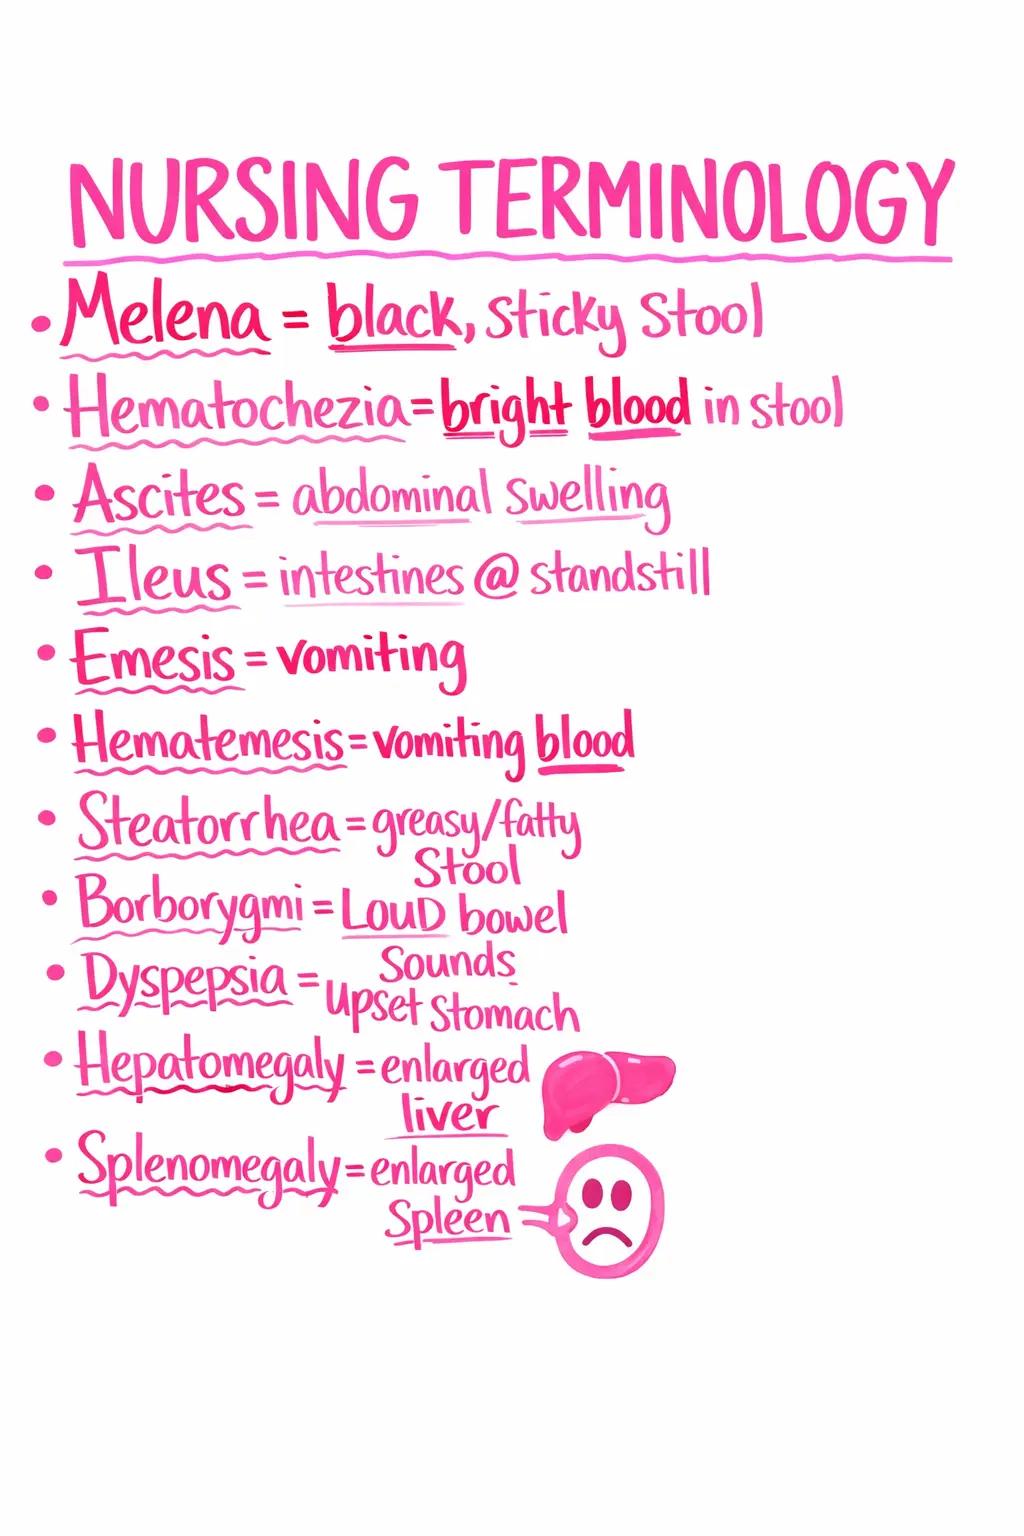 NURSING TERMINOLOGY
• Melena = black, sticky stool
• Hematochezia = bright blood in stool
• Ascites = abdominal swelling
• Ileus = intestines @ standstill
• Emesis = vomiting
• Hematemesis = vomiting blood
• Steatorrhea = greasy/fatty
stool
• Borborygmi = LOUD bowel
sounds
• Dyspepsia = upset stomach
• Hepatomegaly = enlarged
liver
• Splenomegaly = enlarged
spleen